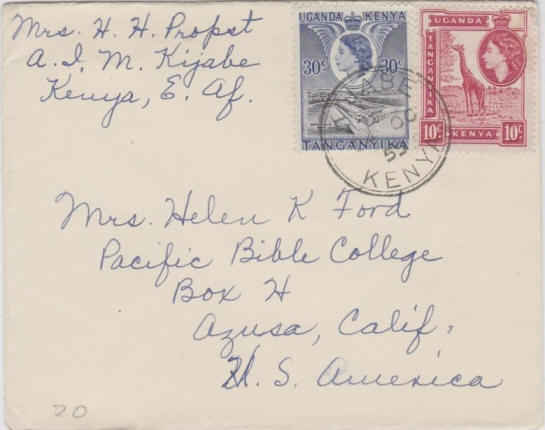 Mrs. H. H. Propst
A. I. M. Kijabe
Kenya, E. Af.
UGANDA KENYA
30c 30c
TANGANYIKA
UGANDA
TANGANYIKA
10c KENYA 10c
KIJABE
OC
KENYA
Mrs. Helen K Ford
Pacific Bible College
Box H
Azusa, Calif,
U. S. America
20